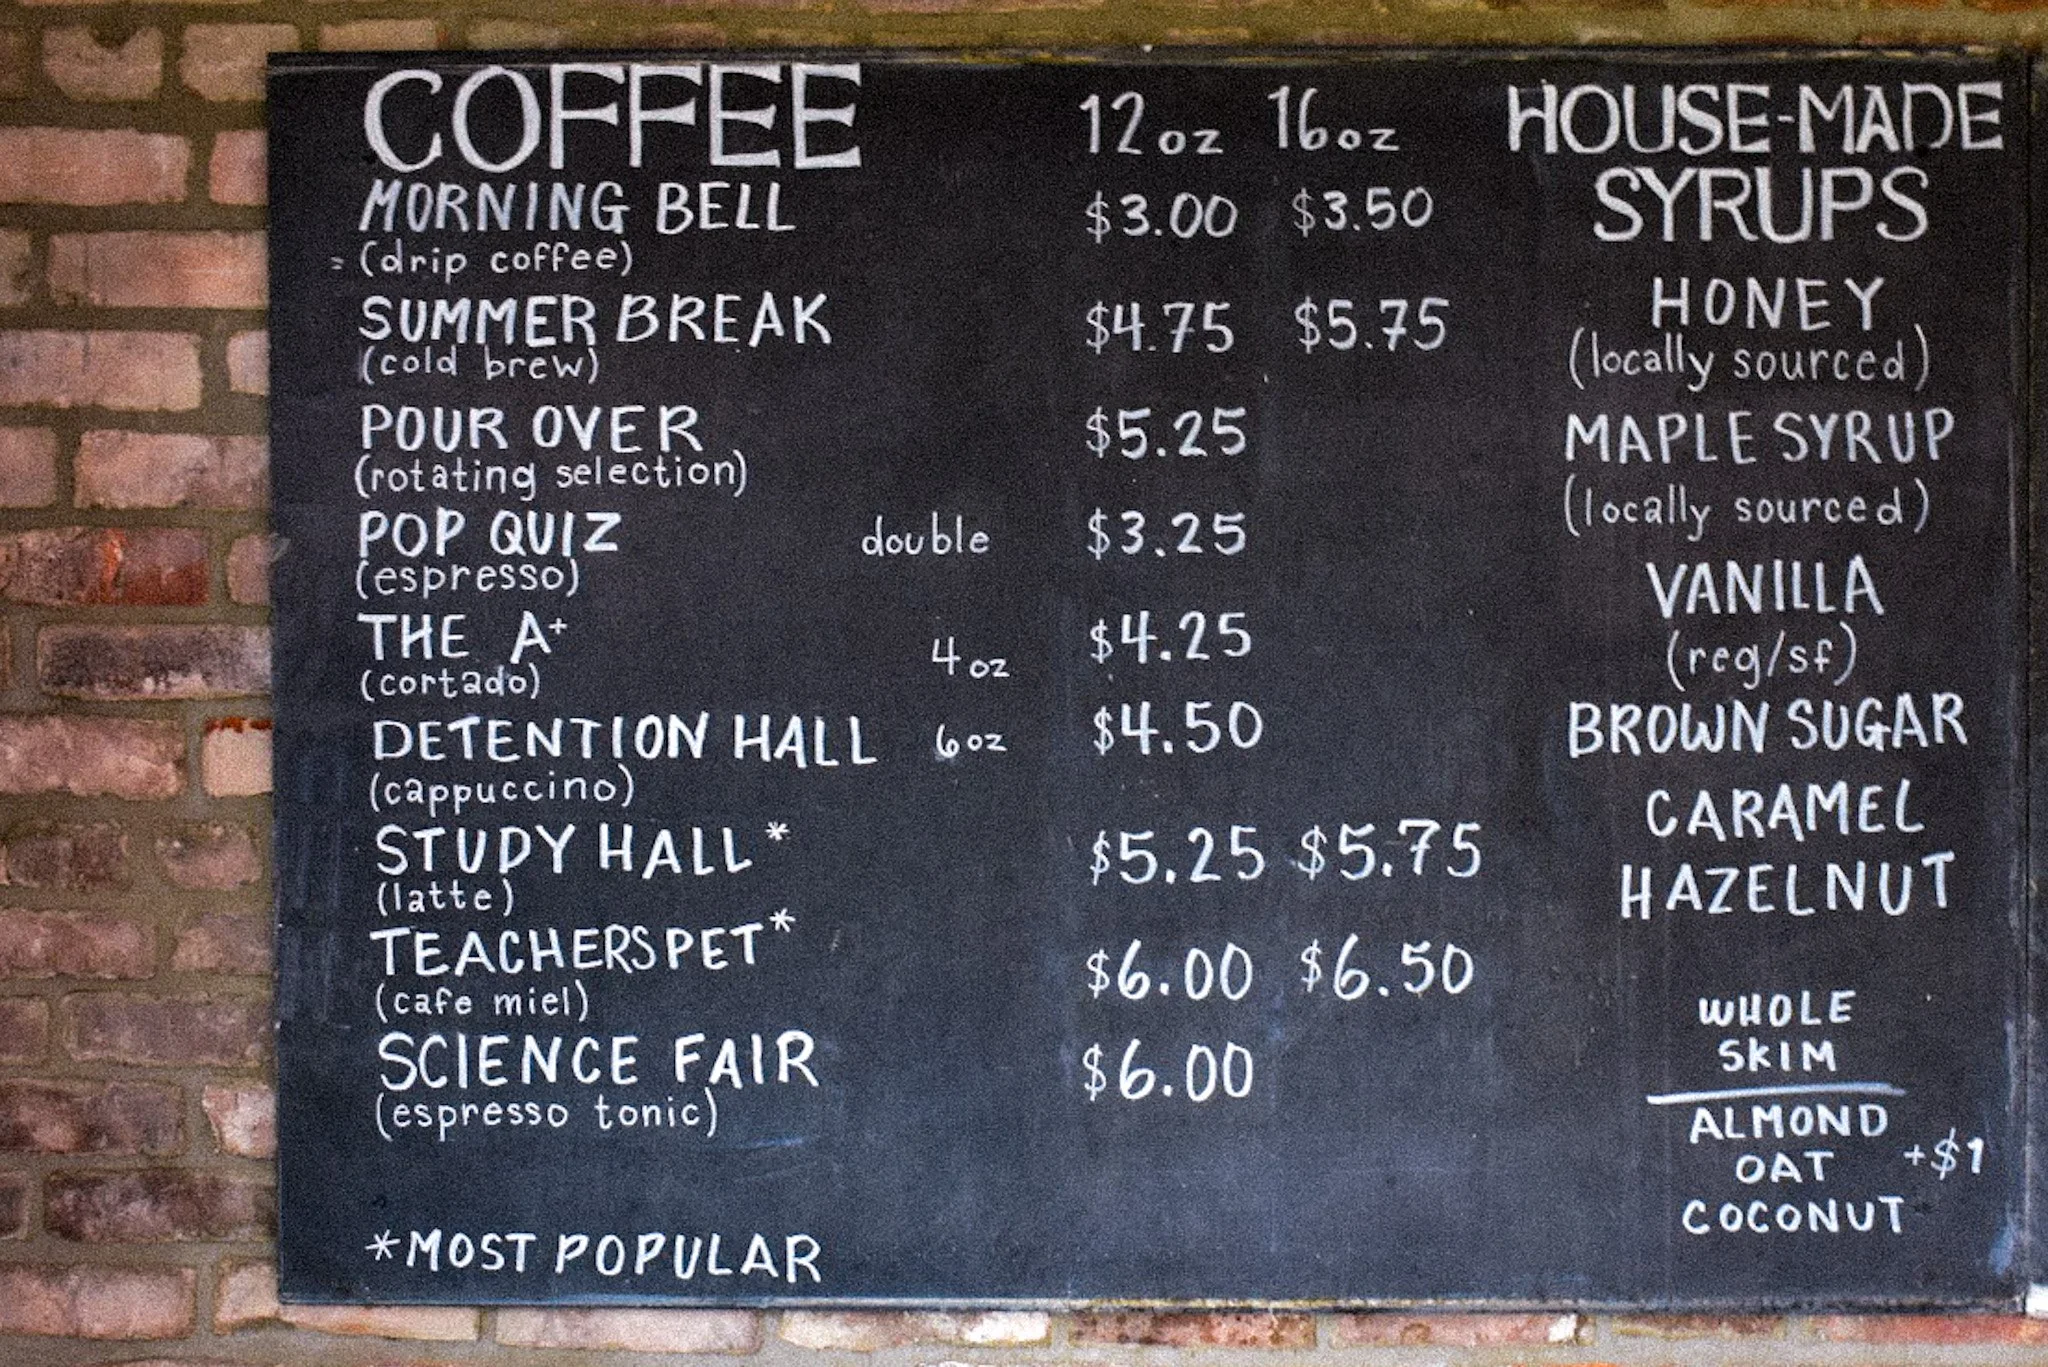 COFFEE 12oz 16oz
MORNING BELL $3.00 $3.50
(drip coffee)
SUMMER BREAK $4.75 $5.75
(cold brew)
POUR OVER $5.25
(rotating selection)
POP QUIZ double $3.25
(espresso)
THE A+ 4oz $4.25
(cortado)
DETENTION HALL 6oz $4.50
(cappuccino)
STUDY HALL* $5.25 $5.75
(latte)
TEACHERS PET* $6.00 $6.50
(cafe miel)
SCIENCE FAIR $6.00
(espresso tonic)
*MOST POPULAR
HOUSE-MADE
SYRUPS
HONEY
(locally sourced)
MAPLE SYRUP
(locally sourced)
VANILLA
(reg/sf)
BROWN SUGAR
CARAMEL
HAZELNUT
WHOLE
SKIM
ALMOND
OAT +$1
COCONUT